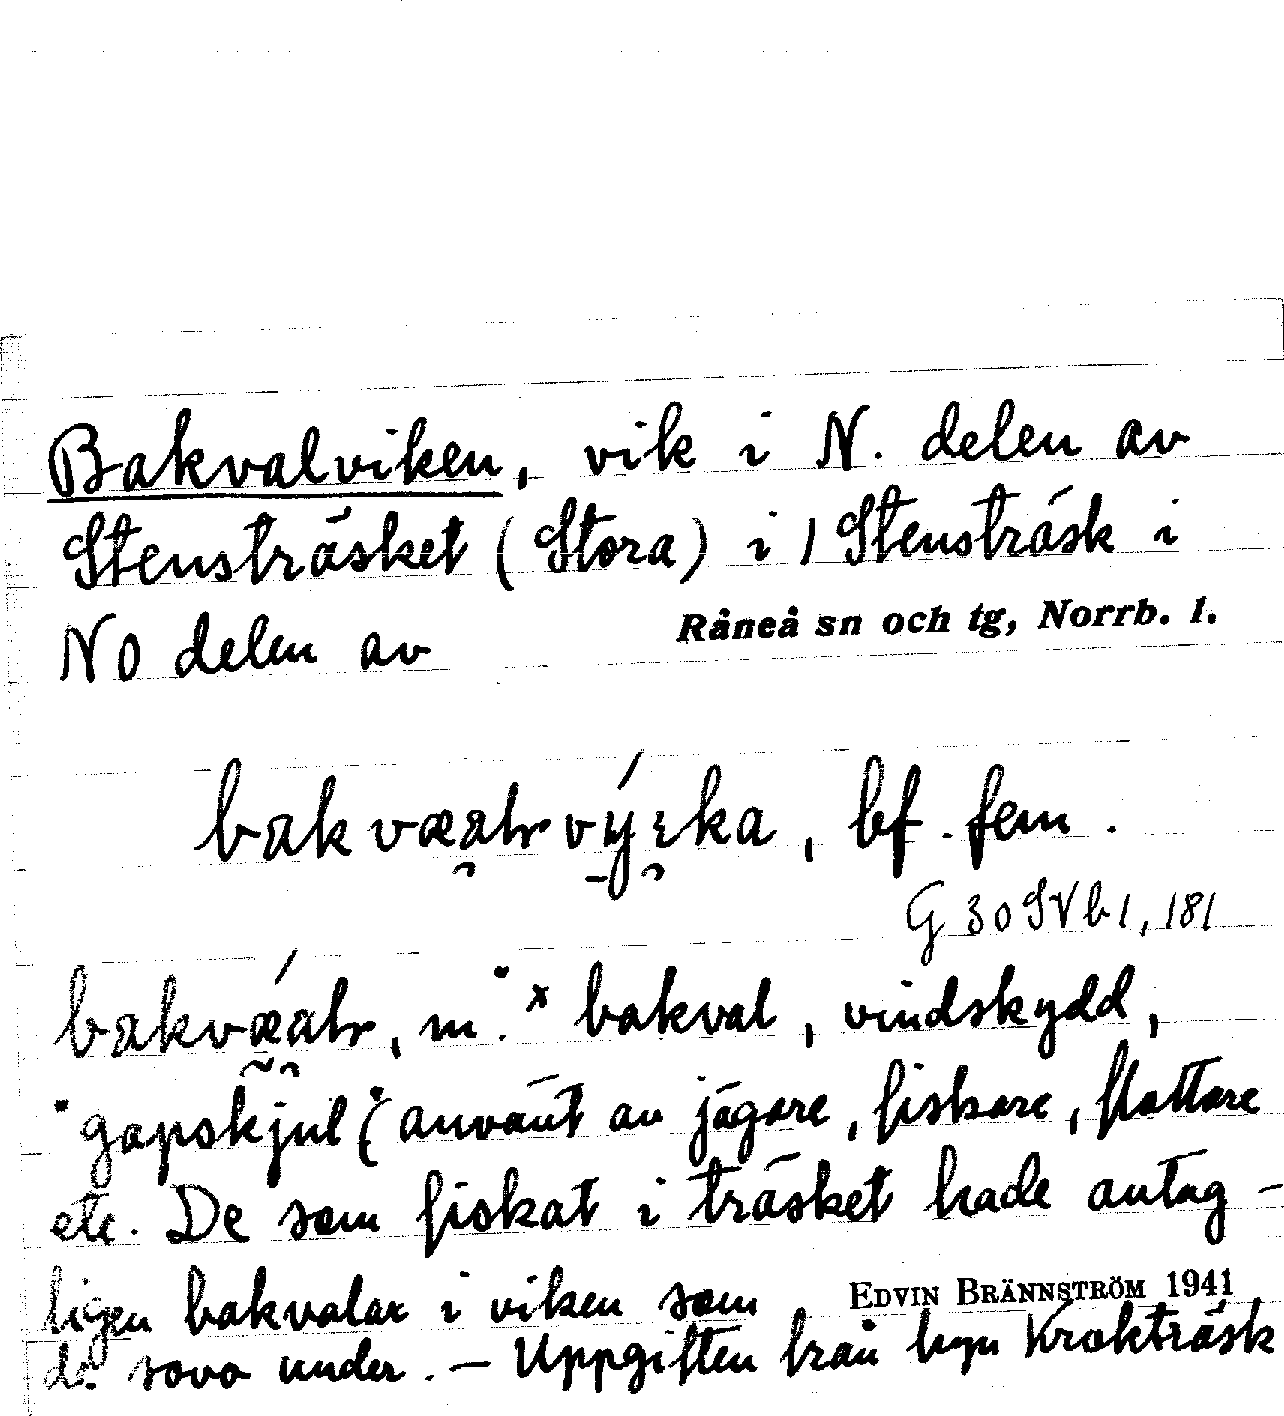 Bakvalviken, vik i N. delen av
Stensträsket (Stora) i / Stensträsk i
NO delen av Råneå sn och tg, Norrb. l.
bf. fem.
G 30 SV b 1, 181
m. x bakval, vindskydd,
"gapskjul" (använt av jägare, fiskare, flottare
etc. De som fiskat i träsket hade antag-
ligen bakvalar i viken som EDVIN BRÄNNSTRÖM 1941
de sovo under. — Uppgiften från byn Krokträsk